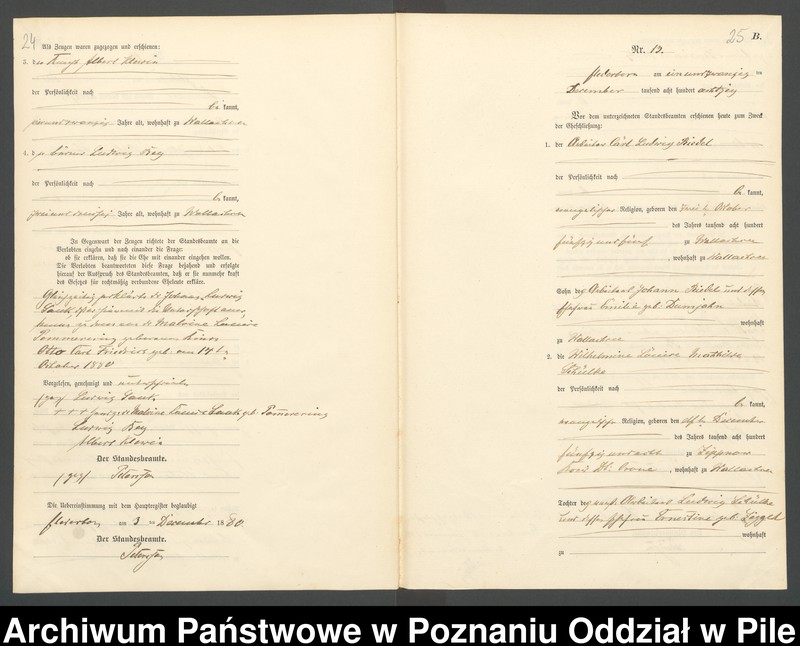 24
Als Zeugen waren zugezogen und erschienen:
3. der Knecht Albert Klawin
der Persönlichkeit nach
be kannt,
Jahre alt, wohnhaft zu Wallachsee
4. der Ludwig Bey
der Persönlichkeit nach
be kannt,
Jahre alt, wohnhaft zu Wallachsee
In Gegenwart der Zeugen richtete der Standesbeamte an die
Verlobten einzeln und nach einander die Frage:
ob sie erklären, daß sie die Ehe mit einander eingehen wollen.
Die Verlobten beantworteten diese Frage bejahend und erfolgte
hierauf der Ausspruch des Standesbeamten, daß er sie nunmehr kraft
des Gesetzes für rechtmäßig verbundene Eheleute erkläre.
Gleichzeitig erklärte der Johann Ludwig
die Vaterschaft
zu dem von der Malvine Louise
Pommerening geborenen Kinde
Otto Carl Friedrich geb. am 14t
October 1880
Vorgelesen, genehmigt und unterschrieben
(gez) Ludwig
+ + + Malvine geb. Pommerening
Ludwig Bey
Albert Klawin
Der Standesbeamte.
(gez) Petersen
Die Uebereinstimmung mit dem Hauptregister beglaubigt
Flederborn am 3. ten December 1880
Der Standesbeamte.
Petersen
25 B.
Nr. 13.
Flederborn am einundzwanzig ten
December tausend acht hundert achtzig
Vor dem unterzeichneten Standesbeamten erschienen heute zum Zweck
der Eheschließung:
1. der Arbeiter Carl Ludwig Riedel
der Persönlichkeit nach
be kannt,
evangelischer Religion, geboren den October
des Jahres tausend acht hundert
fünfzig und fünf zu Wallachsee
, wohnhaft zu Wallachsee
Sohn des Arbeiters Johann Riedel und dessen
Ehefrau Emilie geb. Dumjahn
wohnhaft
zu Wallachsee
2. die Wilhelmine Louise Mathilde
Schülke
der Persönlichkeit nach
be kannt,
evangelischer Religion, geboren den elften December
des Jahres tausend acht hundert
fünfzig und acht zu Zippnow
Kr. Crone, wohnhaft zu Wallachsee
Tochter des Arbeiters Ludwig Schülke
und dessen Ehefrau Ernestine geb.
wohnhaft
zu
Archiwum Państwowe w Poznaniu Oddział w Pile